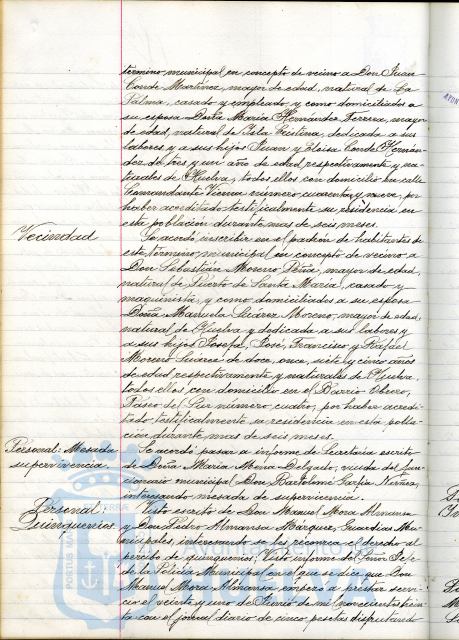 término municipal en concepto de vecino a Don Juan
Conde Martínez, mayor de edad, natural de La
Palma, casado y empleado y como domiciliados a
su esposa Doña María Hernández Ferrera, mayor
de edad, natural de Isla Cristina, dedicada a sus
labores y a sus hijos Juan y Eloisa Conde Hernán-
dez de tres y un año de edad respectivamente y na-
turales de Huelva, todos ellos con domicilio en calle
Comandante Vierna número cuarenta y nueve, por
haber acreditado testificalmente su residencia en
esta población durante mas de seis meses.
Vecindad
Se acordó inscribir en el padrón de habitantes de
este término municipal en concepto de vecino a
Don Sebastián Moreno Peña, mayor de edad,
natural de Puerto de Santa María, casado y
maquinista y como domiciliados a su esposa
Doña Manuela Suárez Moreno, mayor de edad,
natural de Huelva y dedicada a sus labores y
a sus hijos Josefa, José, Francisco y Rafael
Moreno Suárez de doce, once, siete y cinco años
de edad respectivamente y naturales de Huelva,
todos ellos con domicilio en el Barrio Obrero,
Paseo del Sur número cuatro, por haber acredi-
tado testificalmente su residencia en esta pobla-
ción durante mas de seis meses.
Personal: Mesada
supervivencia.
Se acordó pasar a informe de Secretaría escrito
de Doña María Mena Delgado, viuda del fun-
cionario municipal Don Bartolomé Garfia Núñez,
interesando mesada de supervivencia.
Personal
Quinquenios.
Visto escrito de Don Manuel Mora Almansa
y Don Pedro Almansa Márquez, Guardias Mu-
nicipales, interesando se les reconozca el derecho al
percibo de quinquenios; Visto informe del Señor Jefe
de la Policía Municipal en el que se dice que Don
Manuel Mora Almansa, empezó a prestar servi-
cio el veinte y uno de Junio de mil novecientos trein-
ta con el jornal diario de cinco pesetas disfrutando